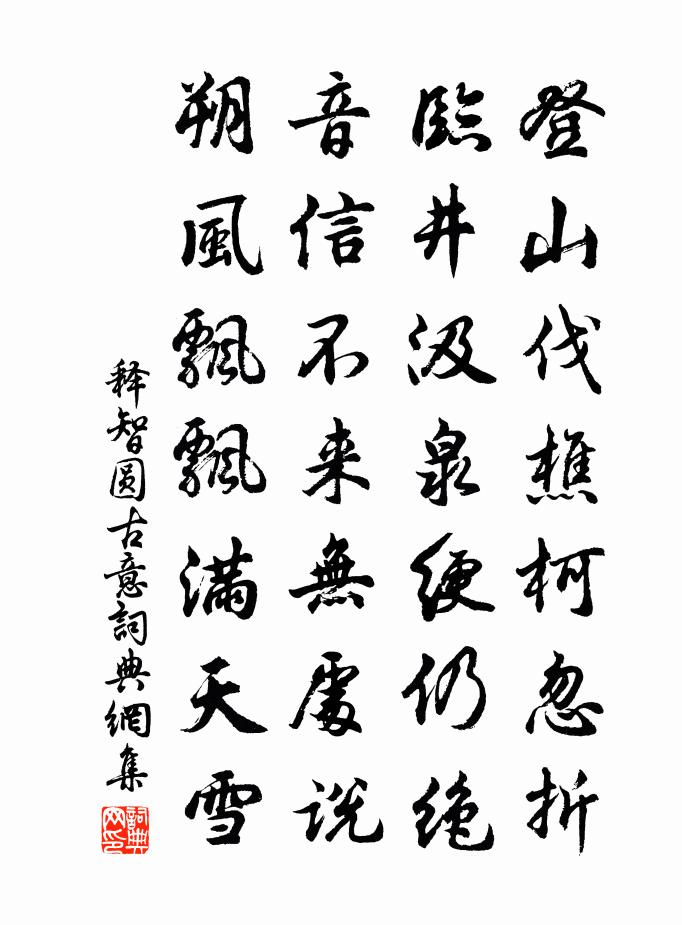 登山伐樵柯忽折
臨井汲泉绠仍绝
音信不来無處説
朔風飄飄滿天雪
释智圆古意詞典網集
詞典網印